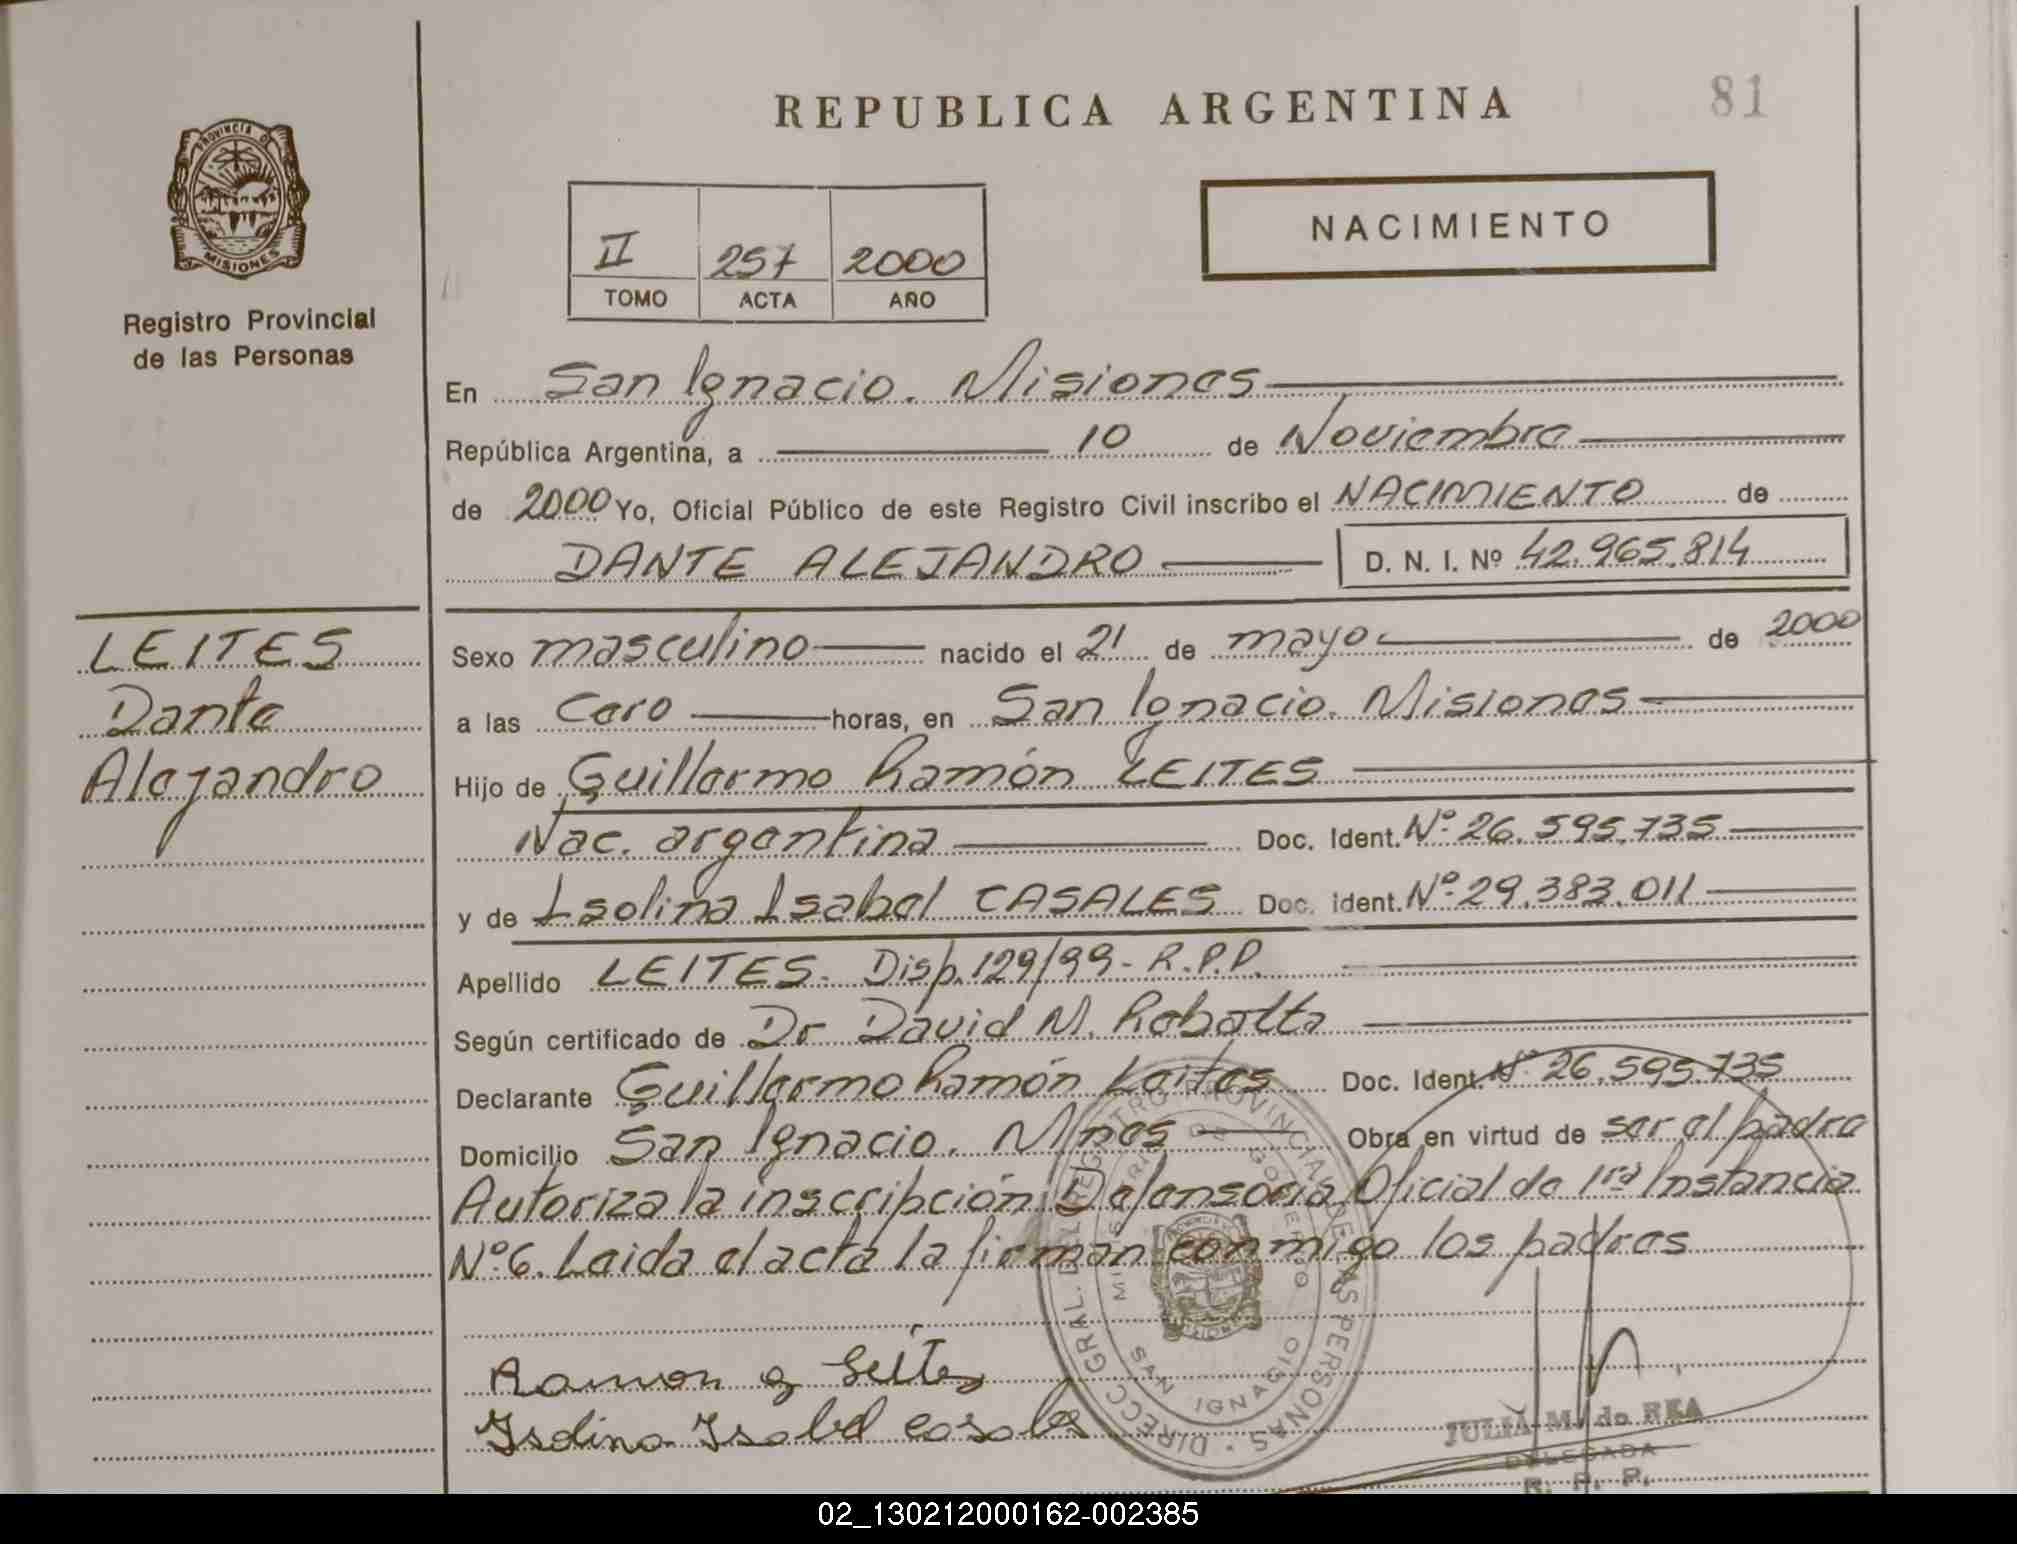 REPUBLICA ARGENTINA
81
PROVINCIA DE
MISIONES
Registro Provincial
de las Personas
II 257 2000
TOMO ACTA AÑO
NACIMIENTO
En San Ignacio. Misiones
República Argentina, a 10 de Noviembre
de 2000 Yo, Oficial Público de este Registro Civil inscribo el NACIMIENTO de
DANTE ALEJANDRO D. N. I. Nº 42.965.814
LEITES
Dante
Alejandro
Sexo masculino nacido el 21 de mayo de 2000
a las Cero horas, en San Ignacio. Misiones
Hijo de Guillermo Ramón LEITES
Nac. argentina Doc. Ident. Nº 26.595.735
y de Isolina Isabel CASALES Doc. ident. Nº 29.383.011
Apellido LEITES. Disp. 129/99 - R.P.P.
Según certificado de Dr David M. Rebolta
Declarante Guillermo Ramón Leites Doc. Ident. Nº 26.595.735
Domicilio San Ignacio. Mnes Obra en virtud de ser el padre
Autoriza la inscripción Defensoria Oficial de 1ra Instancia
Nº 6. Leida el acta la firman conmigo los padres
Ramon g Leites
Isolina Isabel casales
DIRECC GRAL. DEL REGISTRO PROVINCIAL DE LAS PERSONAS
DE GOBIERNO
SAN IGNACIO
JULIA M. de REA
DELEGADA
R. P. P.
02_130212000162-002385